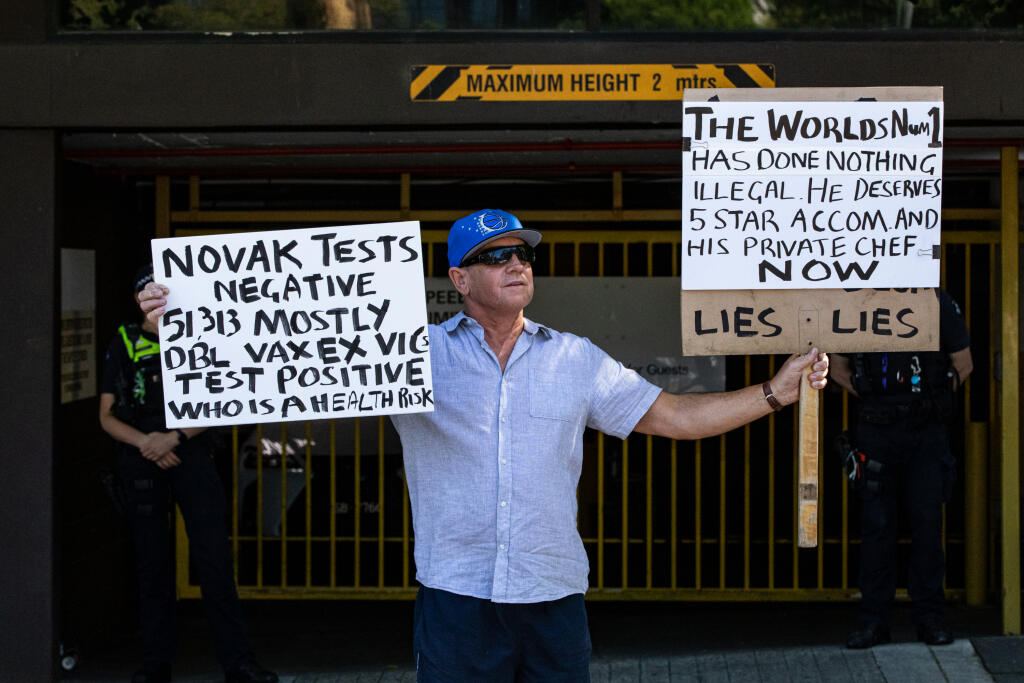 MAXIMUM HEIGHT 2 mtrs
NOVAK TESTS
NEGATIVE
51,313 MOSTLY
DBL VAXEX VICS
TEST POSITIVE
WHO IS A HEALTH RISK
THE WORLDS NUM 1
HAS DONE NOTHING
ILLEGAL. HE DESERVES
5 STAR ACCOM. AND
HIS PRIVATE CHEF
NOW
LIES LIES
for Guests